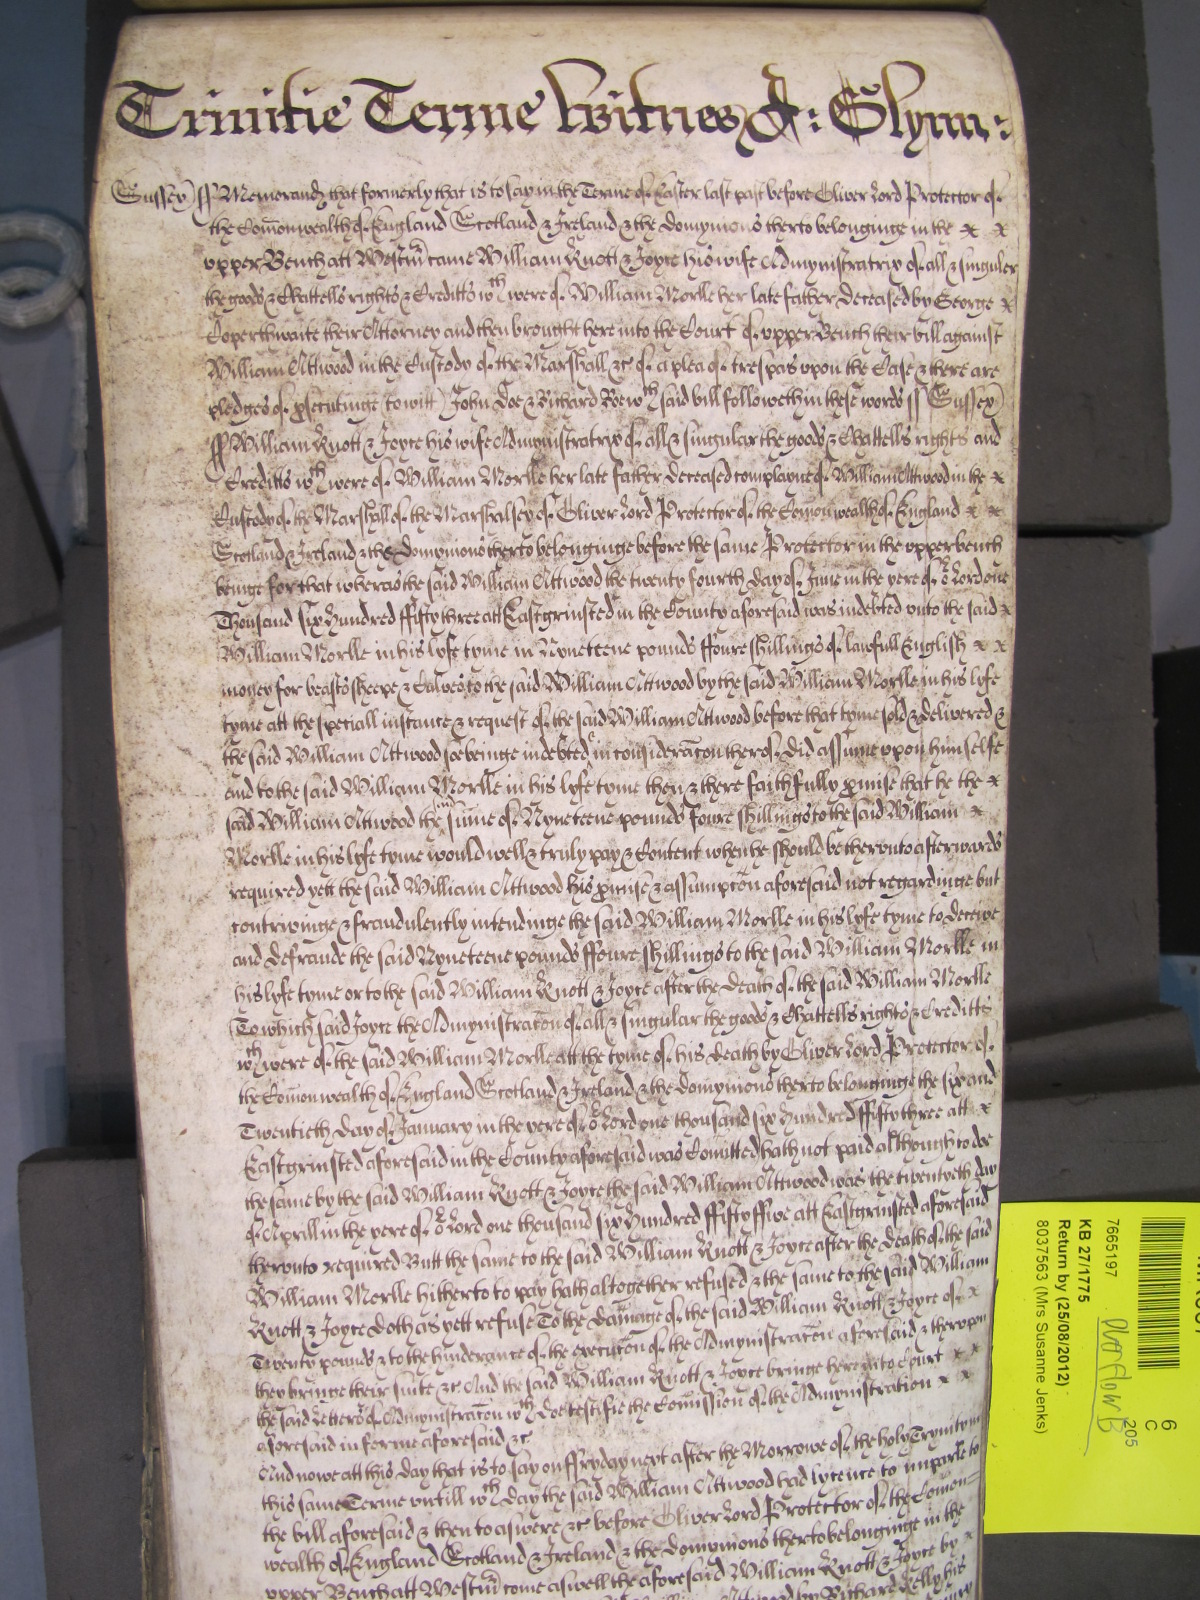 Trinitie Terme Witnes J: Glynn:
Sussex) ss Memorand that formerly that is to say in the Terme of Easter last past before Oliver Lord Protector of
the Com̄onwealth of England Scotland & Ireland & the domynions therto belonginge in the x x
upper Bench att Westm̄ came William Knott & Joyce his wife Admynistratrix of all & singuler
the goods & Chattells rights & Creditts wth were of William Morlle her late father deceased by George x
Coperthwaite their Attorney and then brought here into the Court of upper Bench their bill against
William Attwood in the Custody of the Marshall &c of a plea of trespas upon the Case & there are
pledges of psecutinge (to witt) John Doe & Richard Roe wth said bill followeth in these words ss Sussex)
ss William Knott & Joyce his wife Admynistratrix of all & singular the goods & Chattells rights and
Creditts wth were of William Morlle her late father deceased complayne of William Attwood in the x
Custody of the Marshall of the Marshalsey of Oliver Lord Protector of the Com̄onwealth of England x x
Scotland & Ireland & the domynions therto belonginge before the same Protector in the upper bench
beinge for that wheras the said William Attwood the twenty fourth day of June in the yere of or Lord one
Thousand six hundred ffifty three att Eastgrinsted in the County aforesaid was indebted unto the said x
William Morlle in his lyfe tyme in Nyneteene pounds ffoure shillings of lawfull English x x
money for beasts sheepe & Calves to the said William Attwood by the said William Morlle in his lyfe
tyme att the speciall instance & request of the said William Attwood before that tyme sold & delivered &
the said William Attwood soe beinge indebted in consideracōn therof did assume upon himselfe
and to the said William Morlle in his lyfe tyme then & there faithfully pmise that he the x
said William Attwood the sum̄e of Nyneteene pounds foure shillings to the said William x
Morlle in his lyfe tyme would well & truly pay & Content when he should be therunto afterwards
required yett the said William Attwood his pmise & assumpcōn aforesaid not regardinge but
contrivinge & fraudulently intendinge the said William Morlle in his lyfe tyme to deceive
and defraude the said Nyneteene pounds ffoure shillings to the said William Morlle in
his lyfe tyme or to the said William Knott & Joyce after the death of the said William Morlle
(To which said Joyce the Admynistracōn of all & singular the goods & Chattells rights & Creditts
wth were of the said William Morlle att the tyme of his death by Oliver Lord Protector of
the Com̄onwealth of England Scotland & Ireland & the domynions therto belonginge the six and
Twentieth day of January in the yere of or Lord one thousand six hundred ffifty three att x
Eastgrinsted aforesaid in the County aforesaid was Com̄itted hath not paid although to doe
the same by the said William Knott & Joyce the said William Attwood was the twentyeth day
of Aprill in the yere of or Lord one thousand six hundred ffifty ffive att Eastgrinsted aforesaid
therunto required Butt the same to the said William Knott & Joyce after the death of the said
William Morlle hitherto to pay hath altogether refused & the same to the said William
Knott & Joyce doth as yett refuse To the dam̄age of the said William Knott & Joyce of x
Twenty pounds & to the hinderance of the execucōn of the Admynistracōn aforesaid & therupon
they bringe their suite &c And the said William Knott & Joyce bringe here into Court x x
the said Letters of Admynistracōn wth doe testifie the Com̄ission of the Admynistration x x
aforesaid in forme aforesaid &c
And nowe att this day that is to say on ffryday next after the Morrowe of the holy Trynity in
this same Terme untill wth day the said William Attwood had lycence to imparle to
the bill aforesaid & then to aswere &c before Oliver Lord Protector of the Com̄on=
wealth of England Scotland & Ireland & the domynions therto belonginge in the
upper Bench att Westm̄ come aswell the aforesaid William Knott & Joyce by x
by Richard Kelly his
7665197
KB 27/1775
Return by (25/08/2012)
8037563 (Mrs Susanne Jenks)
6
C
205